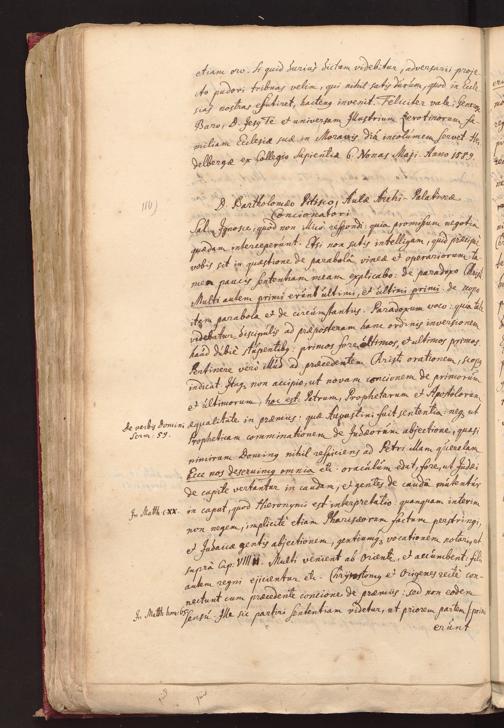 etiam oro. Si quid durius dictum videbitur, adversarii proje-
cto pudori tribuas velim, qui nihil satis durum, quod in Eccle-
sias nostras effutiret, hactenus invenit. Feliciter vale, Generose
Baro, D. Jesus Te et universam Illustrium Zerotinorum fa-
miliam Ecclesiae suae in Moravis diu incolumem servet. Hei-
delbergae ex Collegio Sapientiae 6. Nonas Maji. Anno 1589.
D. Bartholomaeo Pitisco, Aulae Archi-Palatinae
Concionatori
Sal. Ignosce, quod non illico respondi: quia promissum negotia
quaedam interceperunt. Etsi non satis intelligam, quid praecipue
vobis sit in quaestione de parabola vineae et operariorum, ta-
men paucis sententiam meam explicabo: de paradoxo Christi
Multi autem primi erunt ultimi, et ultimi primi: de scopo
item parabolae et de circumstantiis. Paradoxum voco: quia tale
videbatur discipulis ad praeposteram hanc ordinis inversionem
haud dubie stupentibus, primos fore ultimos, et ultimos primos.
Pertinere vero illud ad praecedentem Christi orationem,
indicat. Itaque non accipio, ut novam concionem de primorum
et ultimorum, hoc est, Petrum, Prophetarum et Apostolorum
De verbis Domini aequalitate in praemiis: quae Augustini fuit sententia: neque ut
Serm. 59. Prophetiam comminationem de Judaeorum abjectione, quasi
nimirum Dominus nihil respiciens ad Petri illam querelam
Ecce nos deseruimus omnia etc. oraculum edat, fore, ut Judaei
de capite vertantur in caudam, et gentes de cauda mutentur
In Matth. c. XX. in caput, quod Hieronymi est interpretatio: quanquam interim
non negem, implicite etiam Pharisaeorum fastum perstringi,
et Judaicae gentis abjectionem, gentiumque vocationem notari, ut
supra Cap. VIII. Multi venient ab Oriente, et accumbent: filii
autem regni ejicientur etc. Chrysostomus et Origenes recte con-
nectunt cum praecedente concione de praemiis: sed non eodem
In Matth. hom. 65 sensu. Ille sic partiri sententiam videtur, ut priorem partem, primi
erunt